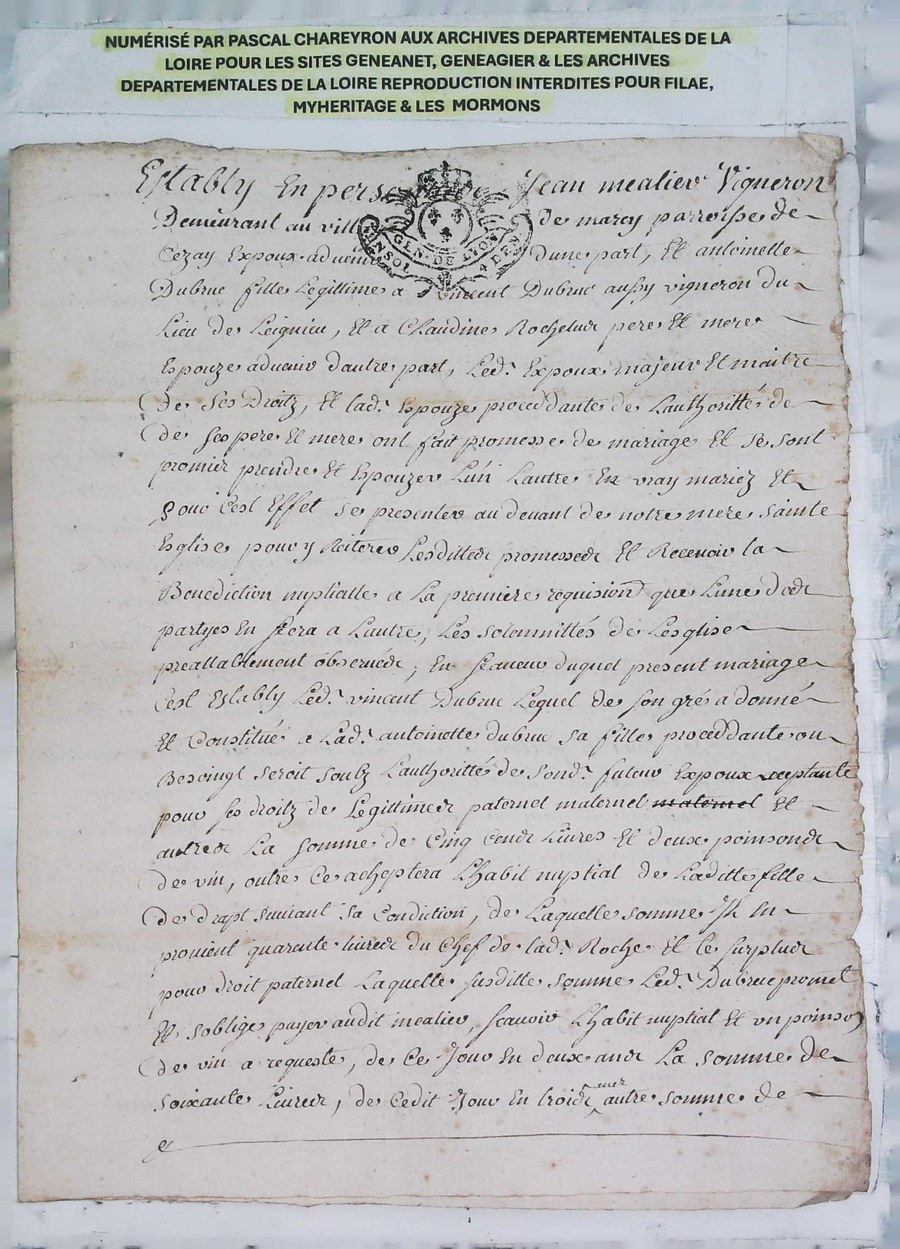 NUMÉRISÉ PAR PASCAL CHAREYRON AUX ARCHIVES DEPARTEMENTALES DE LA
LOIRE POUR LES SITES GENEANET, GENEAGIER & LES ARCHIVES
DEPARTEMENTALES DE LA LOIRE REPRODUCTION INTERDITES POUR FILAE,
MYHERITAGE & LES MORMONS
Establÿ En pers Jean mealier Vigneron
Demeurant au vill de marcy parroisse de
Cezay Expoux advenir dune part, Et antoinette
GEN. DE LYON
4 DEN.
Dubruc fille Legittime a vincent Dubruc aussy vigneron du
Lieu de Leignieu, Et a Claudine Roche leur pere Et mere
Espouze advenir dautre part, Led. Expoux majeur Et maitre
De Ses Droitz, Et lad. Espouze proceddante de Lauthoritté de
de ses pere Et mere ont fait promesse de mariage Et se sont
promier prendre Et Espouzer L'un Lautre En vray mariez Et
pour Cest Effet se presenter au devant de notre mere sainte
Esglise pour y Reiterer Lesdittes promesses Et Recevoir la
Benediction nuptialle a La premiere requision que Lune des
partyes En fera a Lautre, Les solemnittés de Lesglise
preallablement observées; En faveur duquel present mariage
Cest Establÿ Led. vincent Dubruc Lequel de son gré a donné
Et Constitué a Lad. antoinette dubruc sa fille proceddante ou
Besoingt seroit soubz Lauthoritté de sond. futeur Expoux acceptante
pour ses droitz de Legittimes paternel maternel maternel Et
autres La somme de Cinq Cents Livres Et deux poinsonds
de vin, outre Ce acheptera L'habit nuptial de Laditte fille
De drapt suivant sa Condition, de Laquelle somme Il En
provient quarente livres du Chef de lad. Roche Et le surplus
pour droit paternel Laquelle susditte somme Led. Dubruc promet
Et soblige payer audit mealier, scavoir L'habit nuptial Et un poinson
De vin a requeste, de Ce Jour En deux ans La somme de
soixante Livres, de Cedit Jour En trois ans autre somme de